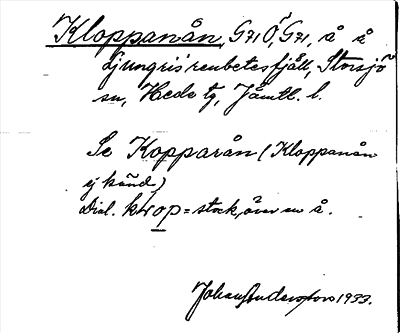 Kloppanån, G71Ö, G71, å å
Ljungris' renbetesfjäll, Storsjö
sn, Hede tg, Jämtl. l.
Se Kopparån (Kloppanån
ej känd)
Dial. = stock över en å.
Johan Andersson 1933.